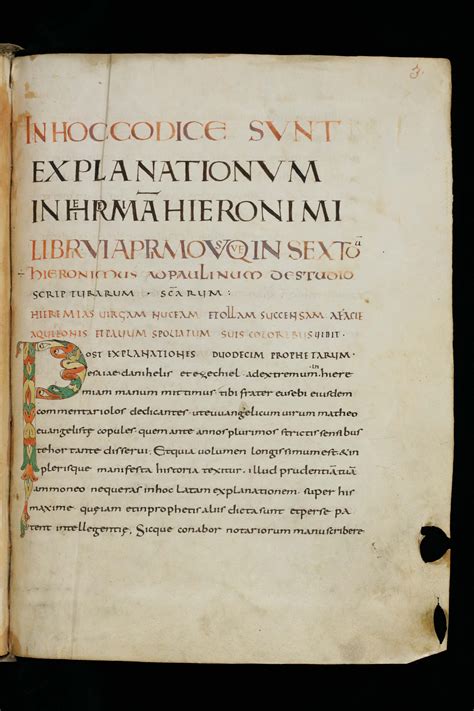 3
IN HOC CODICE SUNT
EXPLANATIONVM
HIERONIMI
LIBRI VI A PRIMO USQ IN SEXTŪ
HIERONIMUS AD PAULINUM DE STUDIO
SCRIPTURARUM · SCARUM :
HIEREMIAS VIRGAM NUCEAM ET OLLAM SUCCENSAM A FACIE
AQUILONIS ET PARDUM SPOLIATUM SUIS COLORIBUS
POST EXPLANATIONES DUODECIM PROPHETARUM ·
esaiae danihelis et ezechiel ad extremum in hiere
miam manum mittimus tibi frater eusebi eiusdem
commentariolos dedicantes ut euuangelicum uirum matheo
euangelistę copules quem ante annos plurimos strictis sensibus
te hortante disserui. Et quia uolumen longissimum est & in
plerisque manifesta historia texitur. illud prudentiā tuā
ammoneo ne quęras in hoc latam explanationem super his
maxime quę iam et in prophetis aliis dicta sunt et per se pa
tent intellegentię. Sicque conabor notariorum manu scribere